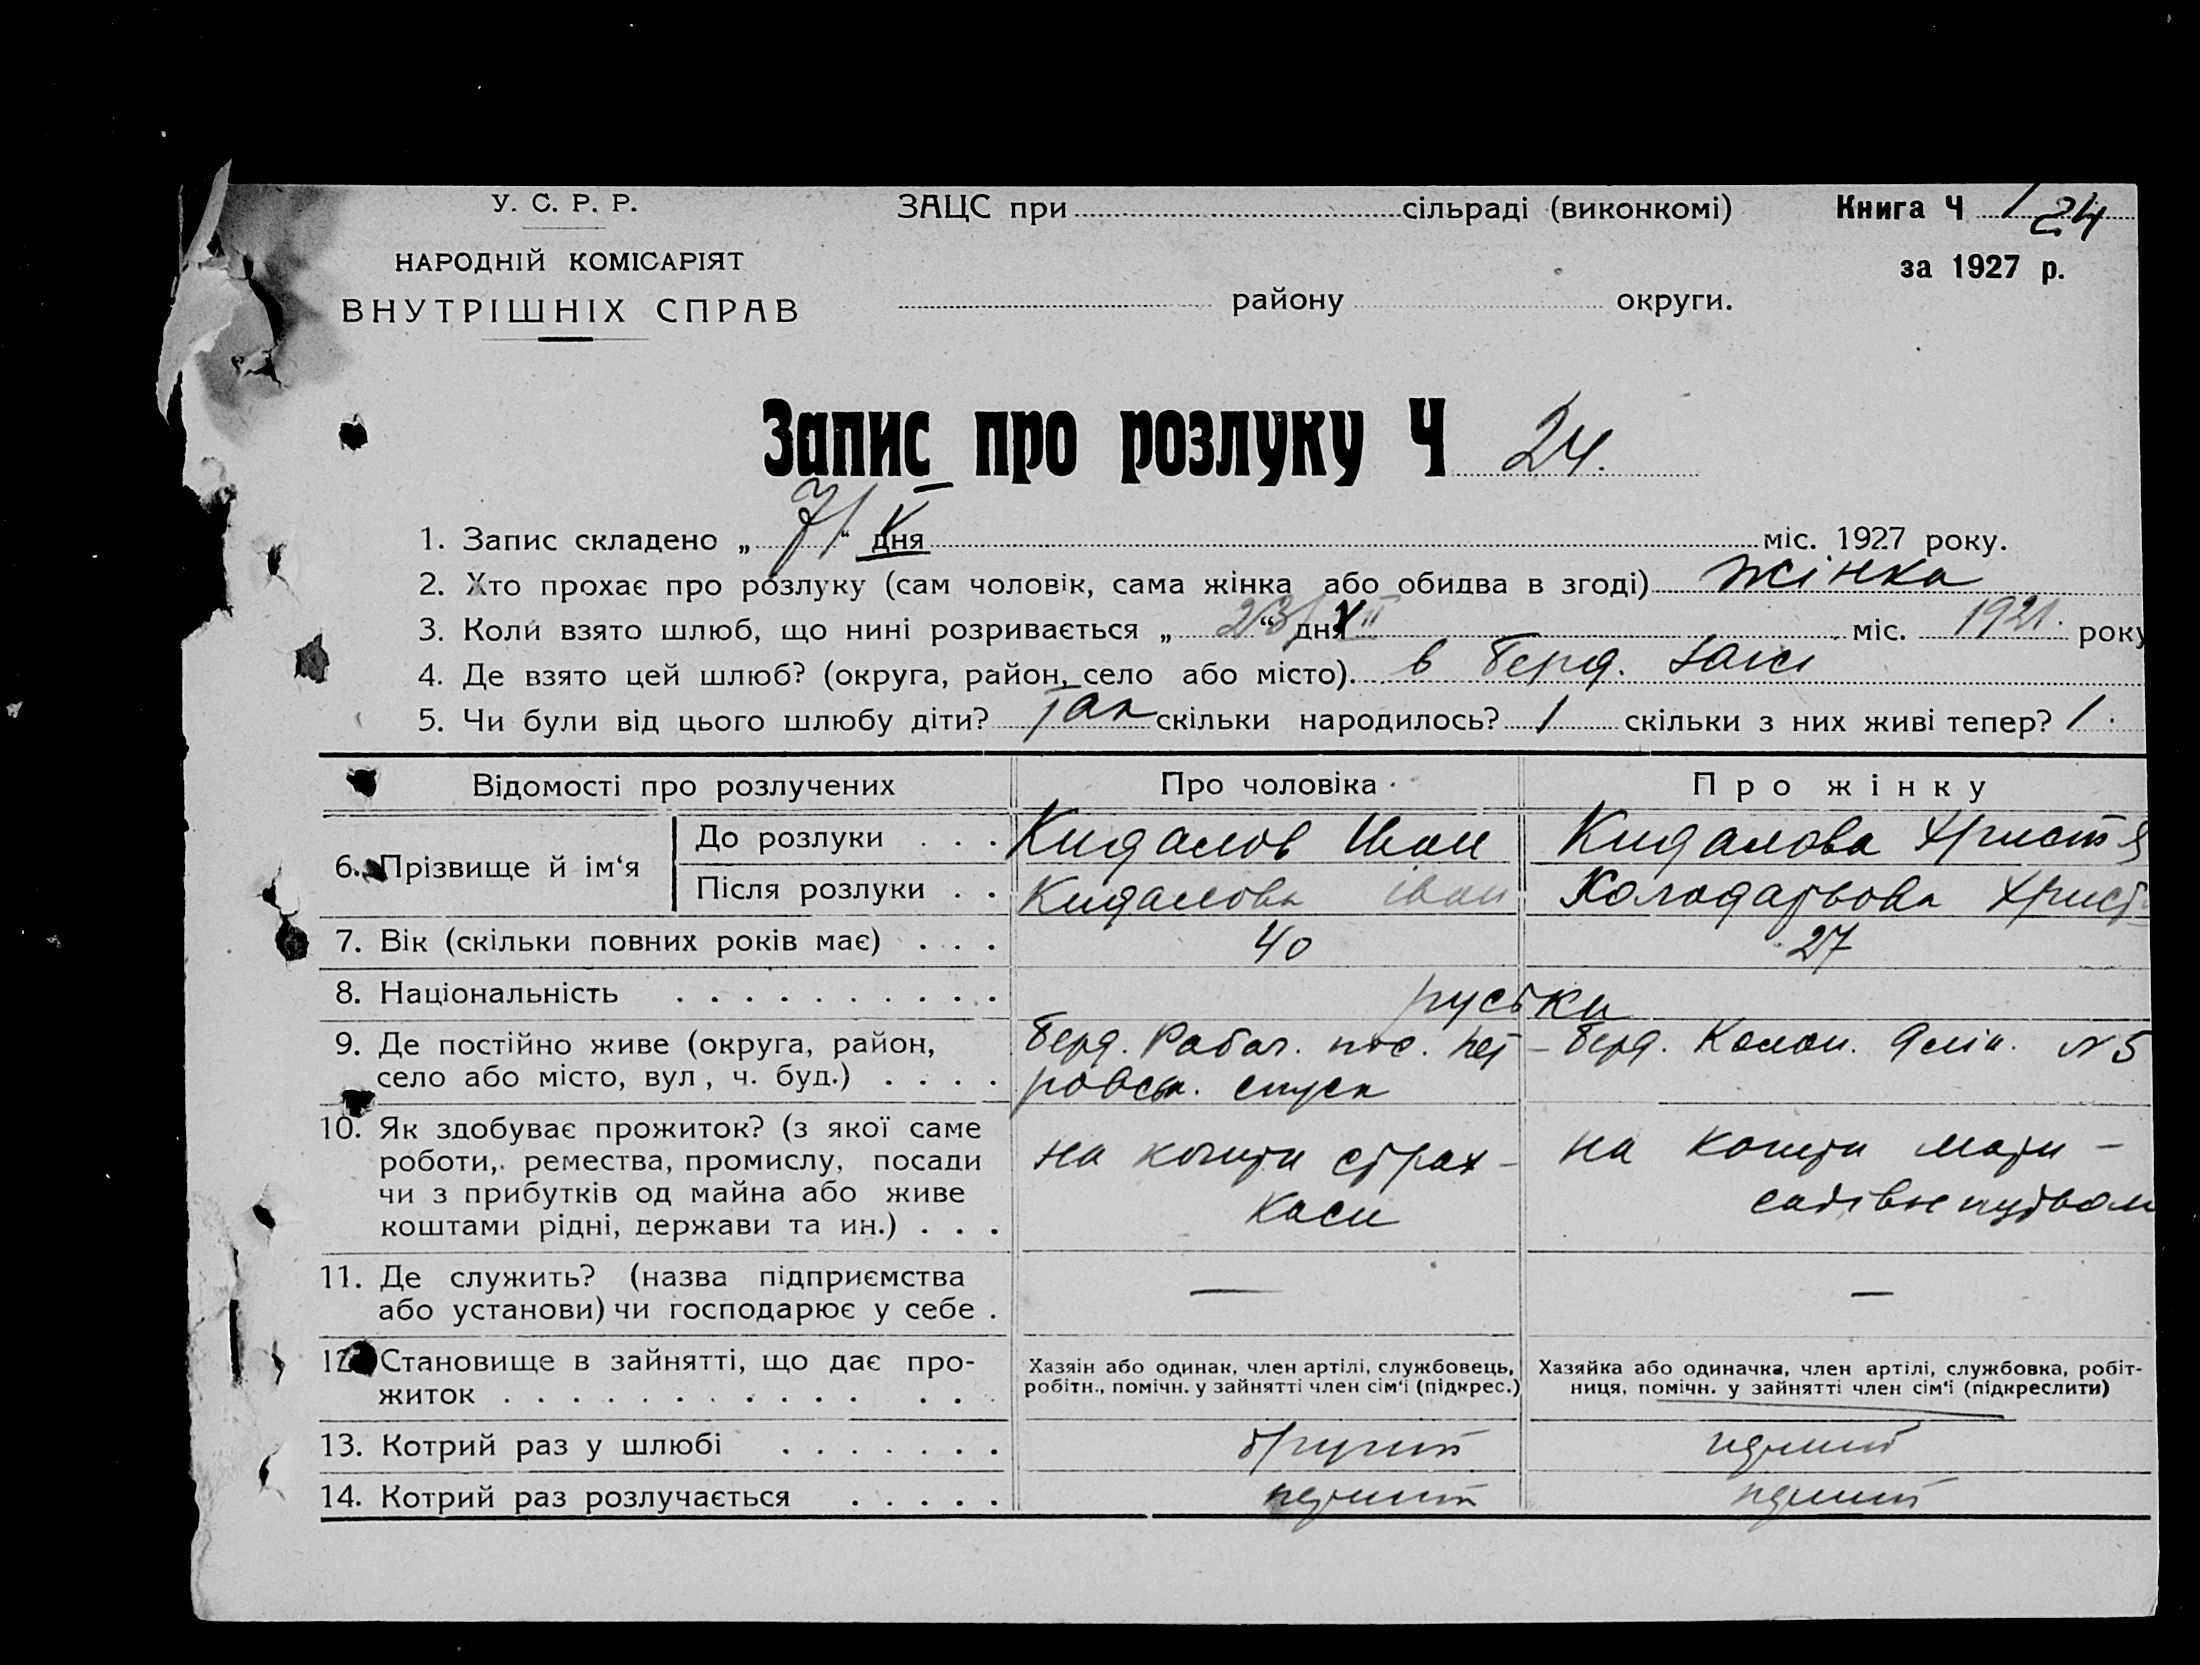 У. С. Р. Р.
НАРОДНІЙ КОМІСАРІЯТ
ВНУТРІШНІХ СПРАВ
ЗАЦС при сільраді (виконкомі)
району округи.
Книга Ч 1 24
за 1927 р.
Запис про розлуку Ч 24.
1. Запис складено „ 7/V “ дня міс. 1927 року.
2. Хто прохає про розлуку (сам чоловік, сама жінка або обидва в згоді) жінка
3. Коли взято шлюб, що нині розривається „ 23/ “ дня міс. 1921. року
4. Де взято цей шлюб? (округа, район, село або місто). в Берд. Загсі
5. Чи були від цього шлюбу діти? Так скільки народилось? 1 скільки з них живі тепер? 1.
Відомості про розлучених Про чоловіка Про жінку
6. Прізвище й ім‘я До розлуки . . . Кидалов Іван Кидалова Христя
Після розлуки . . Кидалова іван Христ
7. Вік (скільки повних років має) . . . 40 27
8. Національність . . . . . . . . . . руськи
9. Де постійно живе (округа, район, Берд. Рабоч. пос. Пет- Берд. Колон. 9 лін. N 5
село або місто, вул, ч. буд.) . . . . ровск. спуск
10. Як здобуває прожиток? (з якої саме
роботи, ремества, промислу, посади на кошти страх- на кошти мати-
чи з прибутків од майна або живе
коштами рідні, держави та ин.) . . . каси
11. Де служить? (назва підприємства — —
або установи) чи господарює у себе .
12. Становище в зайнятті, що дає про- Хазяін або одинак, член артілі, службовець, Хазяйка або одиначка, член артілі, службовка, робіт-
житок . . . . . . . . . . . . . робітн., помічн. у зайнятті член сім‘і (підкрес.) ниця, помічн. у зайнятті член сім‘і (підкреслити)
13. Котрий раз у шлюбі . . . . . . . другий перший
14. Котрий раз розлучається . . . . . перший перший